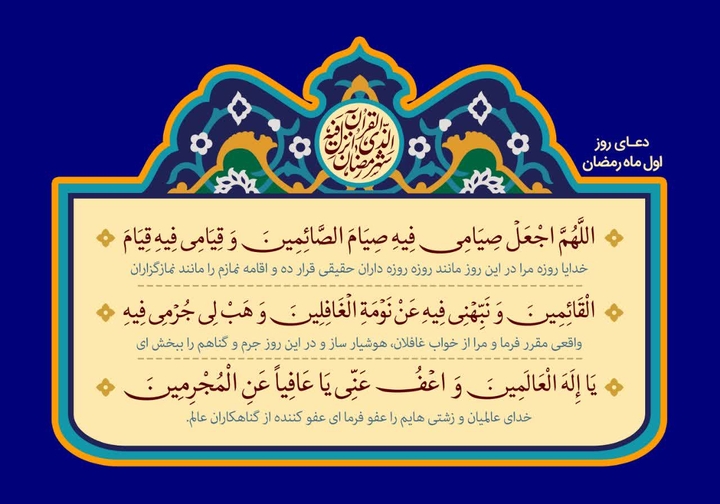 شهر رمضان الذی انزل فیه القرآن
دعـای روز
اول ماه رمضان
اللَّهُمَّ اجْعَلْ صِیَامِی فِیهِ صِیَامَ الصَّائِمِینَ وَ قِیَامِی فِیهِ قِیَامَ
خدایا روزه مرا در این روز مانند روزه روزه داران حقیقی قرار ده و اقامه نمازم را مانند نمازگزاران
الْقَائِمِینَ وَ نَبِّهْنِی فِیهِ عَنْ نَوْمَةِ الْغَافِلِینَ وَ هَبْ لِی جُرْمِی فِیهِ
واقعی مقرر فرما و مرا از خواب غافلان، هوشیار ساز و در این روز جرم و گناهم را ببخش ای
یَا إِلَهَ الْعَالَمِینَ وَ اعْفُ عَنِّی یَا عَافِیاً عَنِ الْمُجْرِمِینَ
خدای عالمیان و زشتی هایم را عفو فرما ای عفو کننده از گناهکاران عالم.